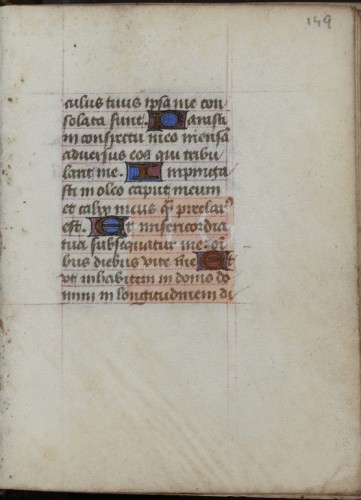 149
culus tuus ipsa me con
solata sunt. Parasti
in conspectu meo mensa
adversus eos qui tribu
lant me. Inpingua
sti in oleo caput meum
et calix meus q̄ preclar᷒
est. Et misericordia
tua subsequatur me: oī
bus diebus vite me Et
ut inhabitem in domo do
mini in longitudinem di